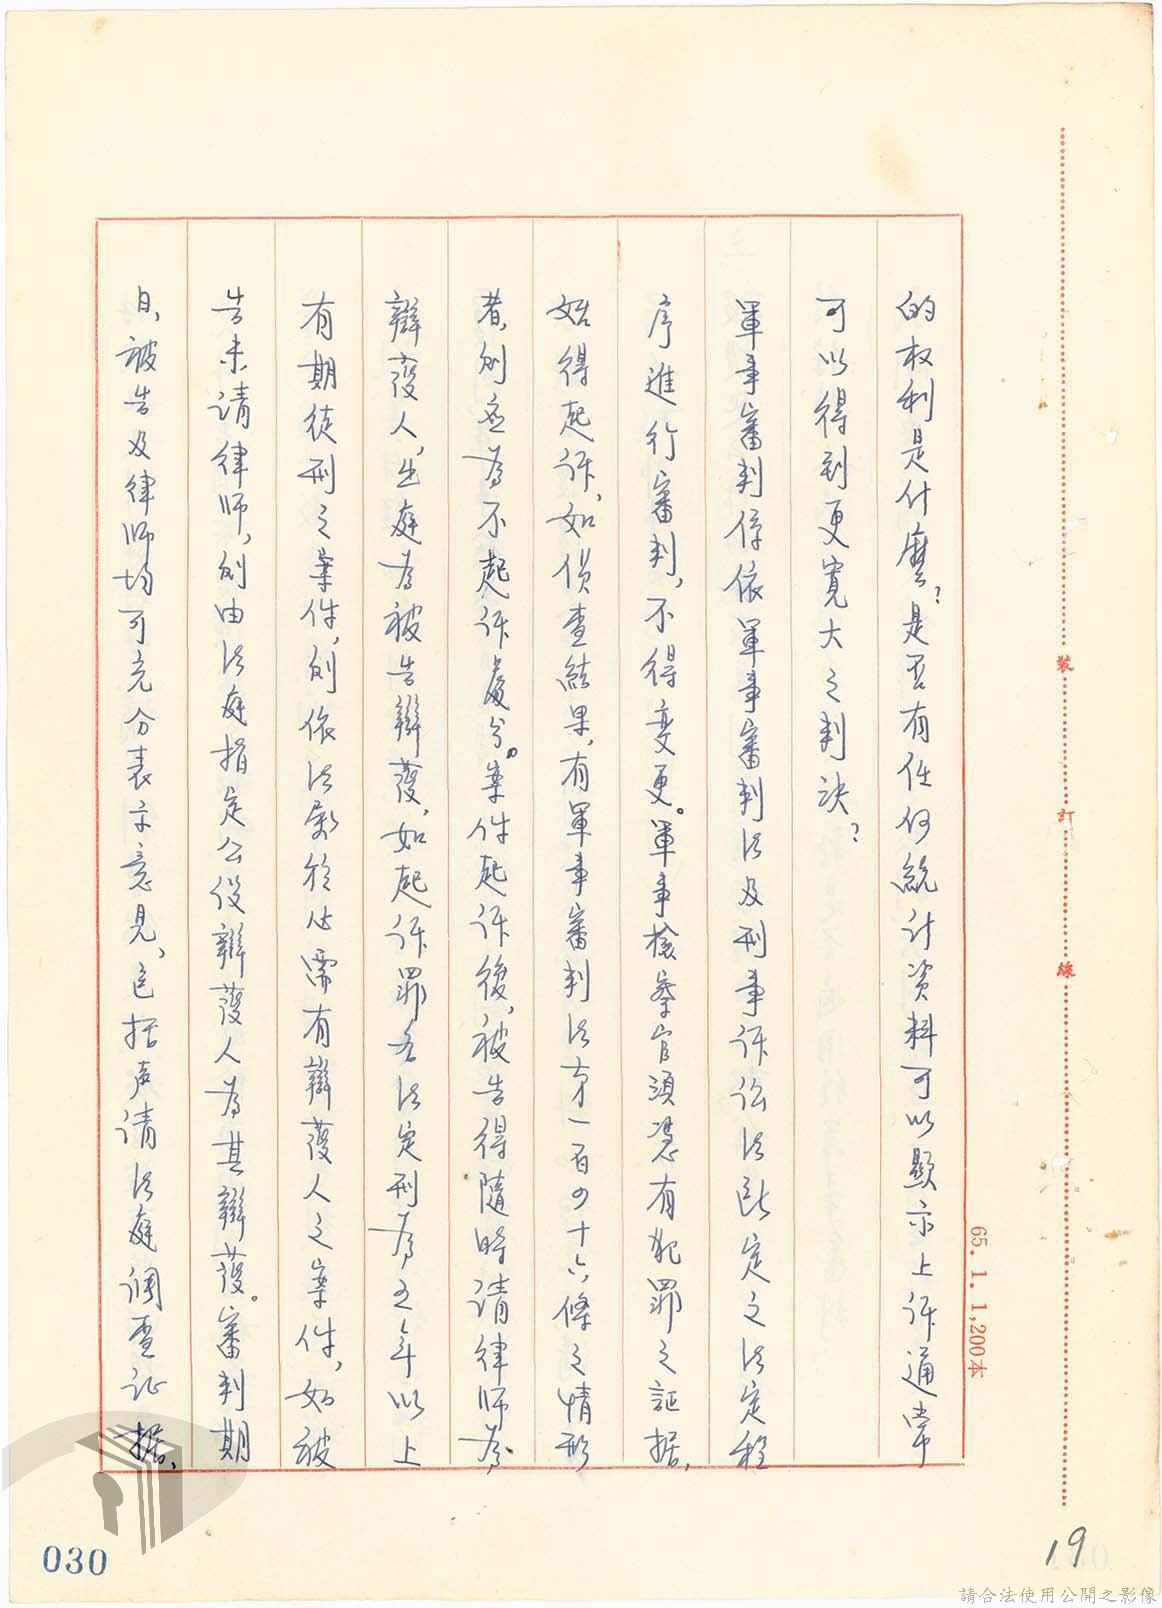 的权利是什麼?是否有任何統计资料可以顯示上诉通常
可以得到更寬大之判决?
軍事審判係依軍事審判法及刑事诉讼法所定之法定程
序進行審判,不得变更。軍事檢察官須憑有犯罪之証据,
始得起诉,如侦查結果,有軍事審判法第一百四十六條之情形
者,則应為不起诉處分。案件起诉後,被告得隨時请律师為
辯護人,出庭為被告辯護,如起诉罪名法定刑為五年以上
有期徒刑之案件,則依法屬於必需有辯護人之案件,如被
告未请律师,則由法庭指定公設辯護人為其辯護。審判期
日,被告及律师均可充分表示意見,包括声请法庭调查证据,
裝
訂
線
65. 1. 1,200本
19
030
請合法使用公開之影像